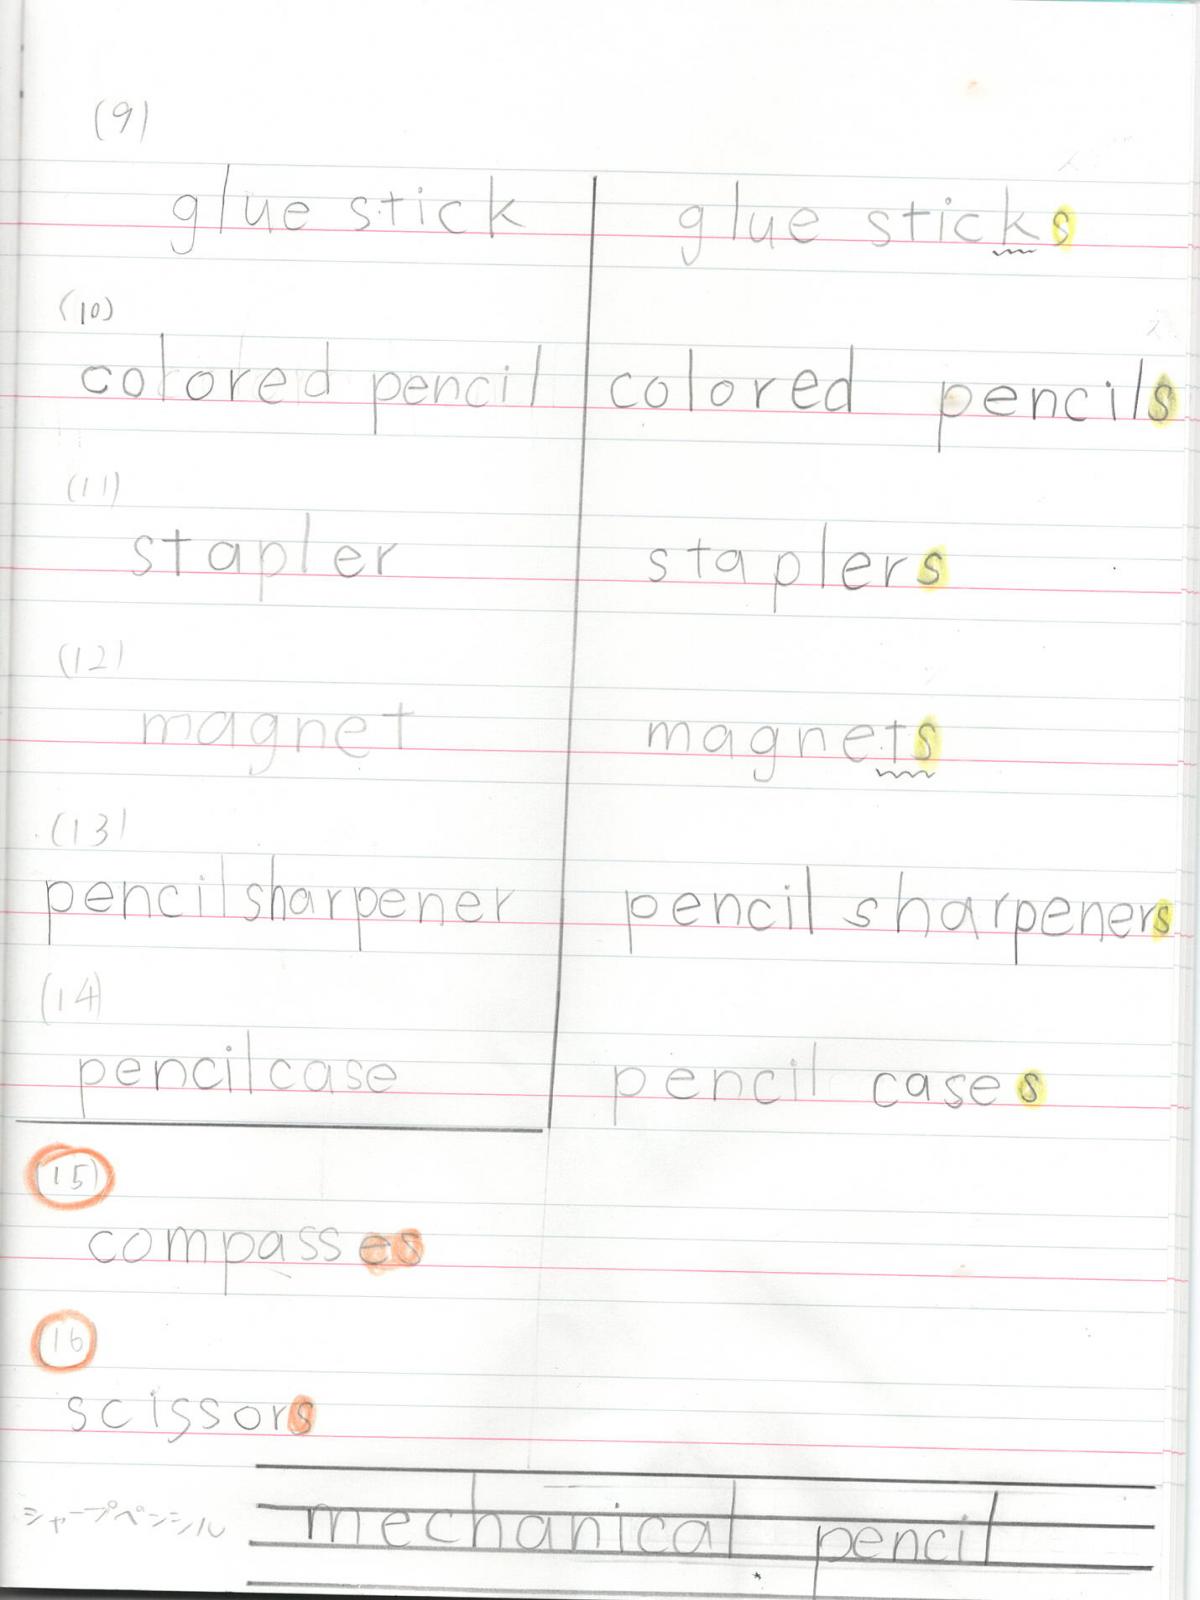 (9)
glue stick glue sticks
(10)
colored pencil colored pencils
(11)
stapler staplers
(12)
magnet magnets
(13)
pencilsharpener pencil sharpeners
(14)
pencilcase pencil cases
(15)
compasses
16
scissors
シャープペンシル mechanical pencil